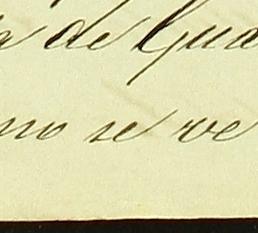 a de Gua
no se ve